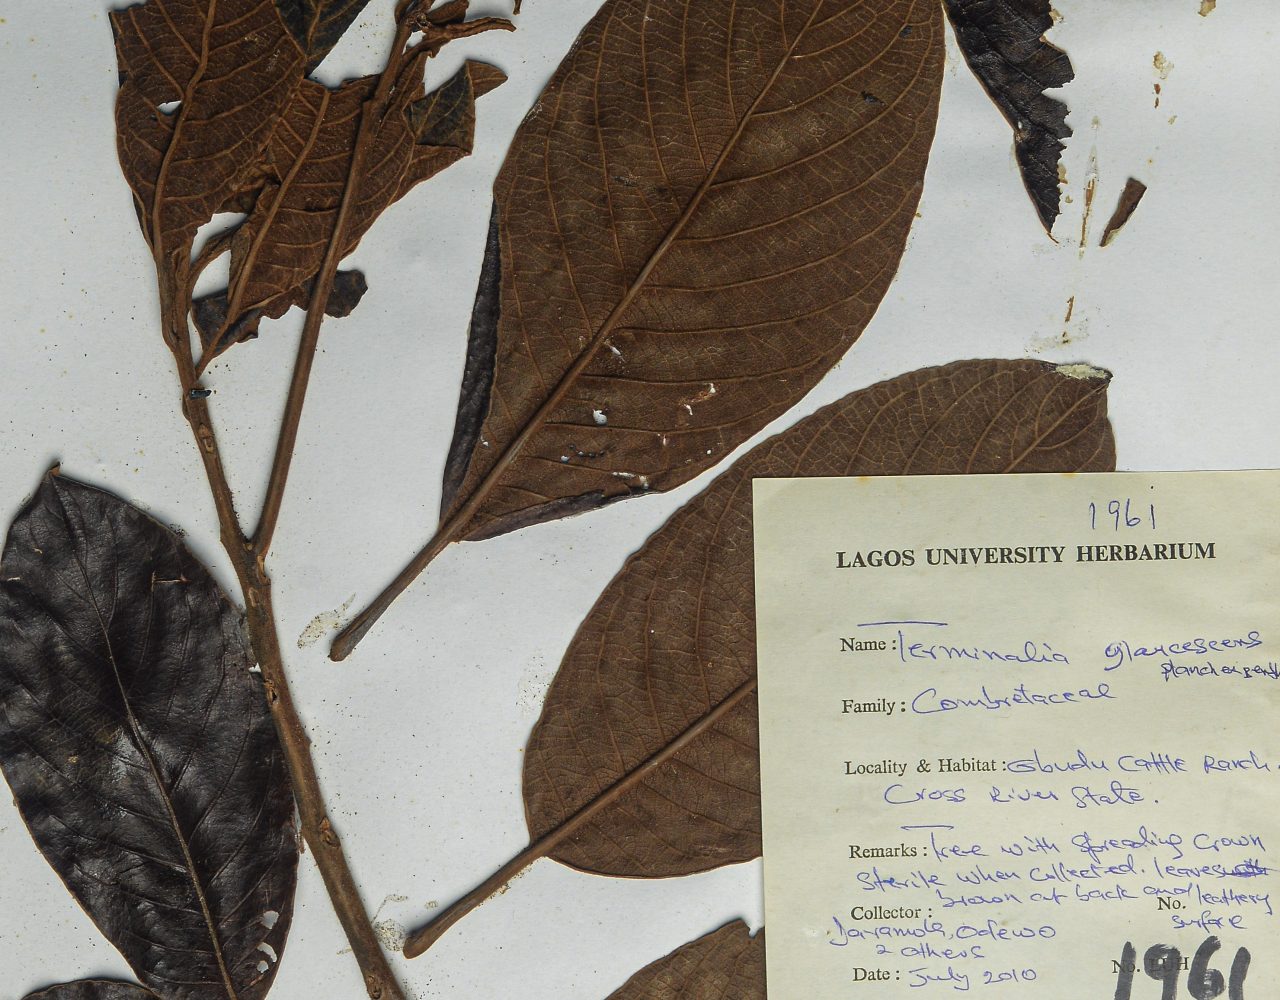 1961
LAGOS UNIVERSITY HERBARIUM
Name: Terminalia glaucescens
Family: Combretaceae
Locality & Habitat: Obudu Cattle Ranch.
Cross River State.
Remarks: Tree with spreading crown
sterile when collected. leaves
brown at back and leathery
surface
Collector: No.
Odewo
2 others
Date: July 2010
No. LUH
1961